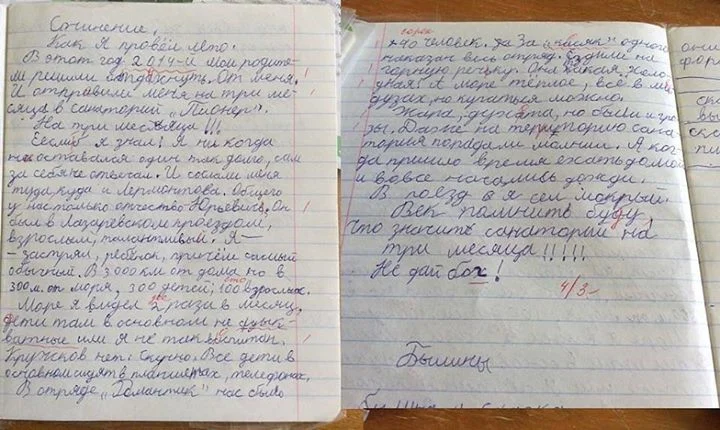 Сочинение.
Как я провёл лето.
В этот год 2014-й мои родите-
ли решили отдохнуть. От меня.
И отправили меня на три ме-
сяца в санаторий "Пионер".
На три месяца!!!
Если б я знал! Я ни когда
не оставался один так долго, сам
за себя не отвечал. И сослали меня
туда, куда и Лермонтова. Общего
у нас только отчество Юрьевич. Он
был в Лазаревском проездом,
взрослый, талантливый. Я -
- застрял, ребёнок, причём самый
обычный. В 3000 км от дома но в
300 м. от моря, 300 детей, 100 взрослых.
сто
Море я видел 2 раза в месяц,
два
дети там в основном не
ватные или я не так воспитан.
Кружков нет. Скучно. Все дети в
основном сидят в планшетах, телефонах.
В отряде "Романтик" нас было
сорок
40 человек. Да за "косяк" одного
наказан весь отряд. Ездили на
горную речку. Она какая холо-
дная! А море тёплое, всё в ме
дузах, но купаться можно.
Жара, духота, но были и гро-
зы. Даже на территорию сана-
тория попадали молнии. А ког-
да пришло время ехать домой
и вовсе начались дожди.
В поезд я сел мокрый.
Век помнить буду
что значить санаторий на
три месяца!!!!!
Не дай бог!
4/3-
Былины